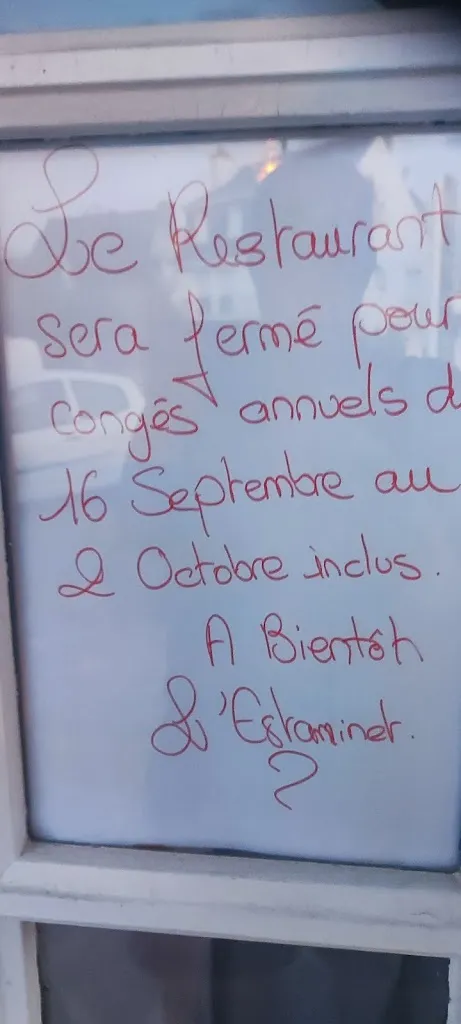 Le Restaurant
sera fermé pour
congés annuels d
16 Septembre au
2 Octobre inclus.
A Bientôt
L'Estaminet.